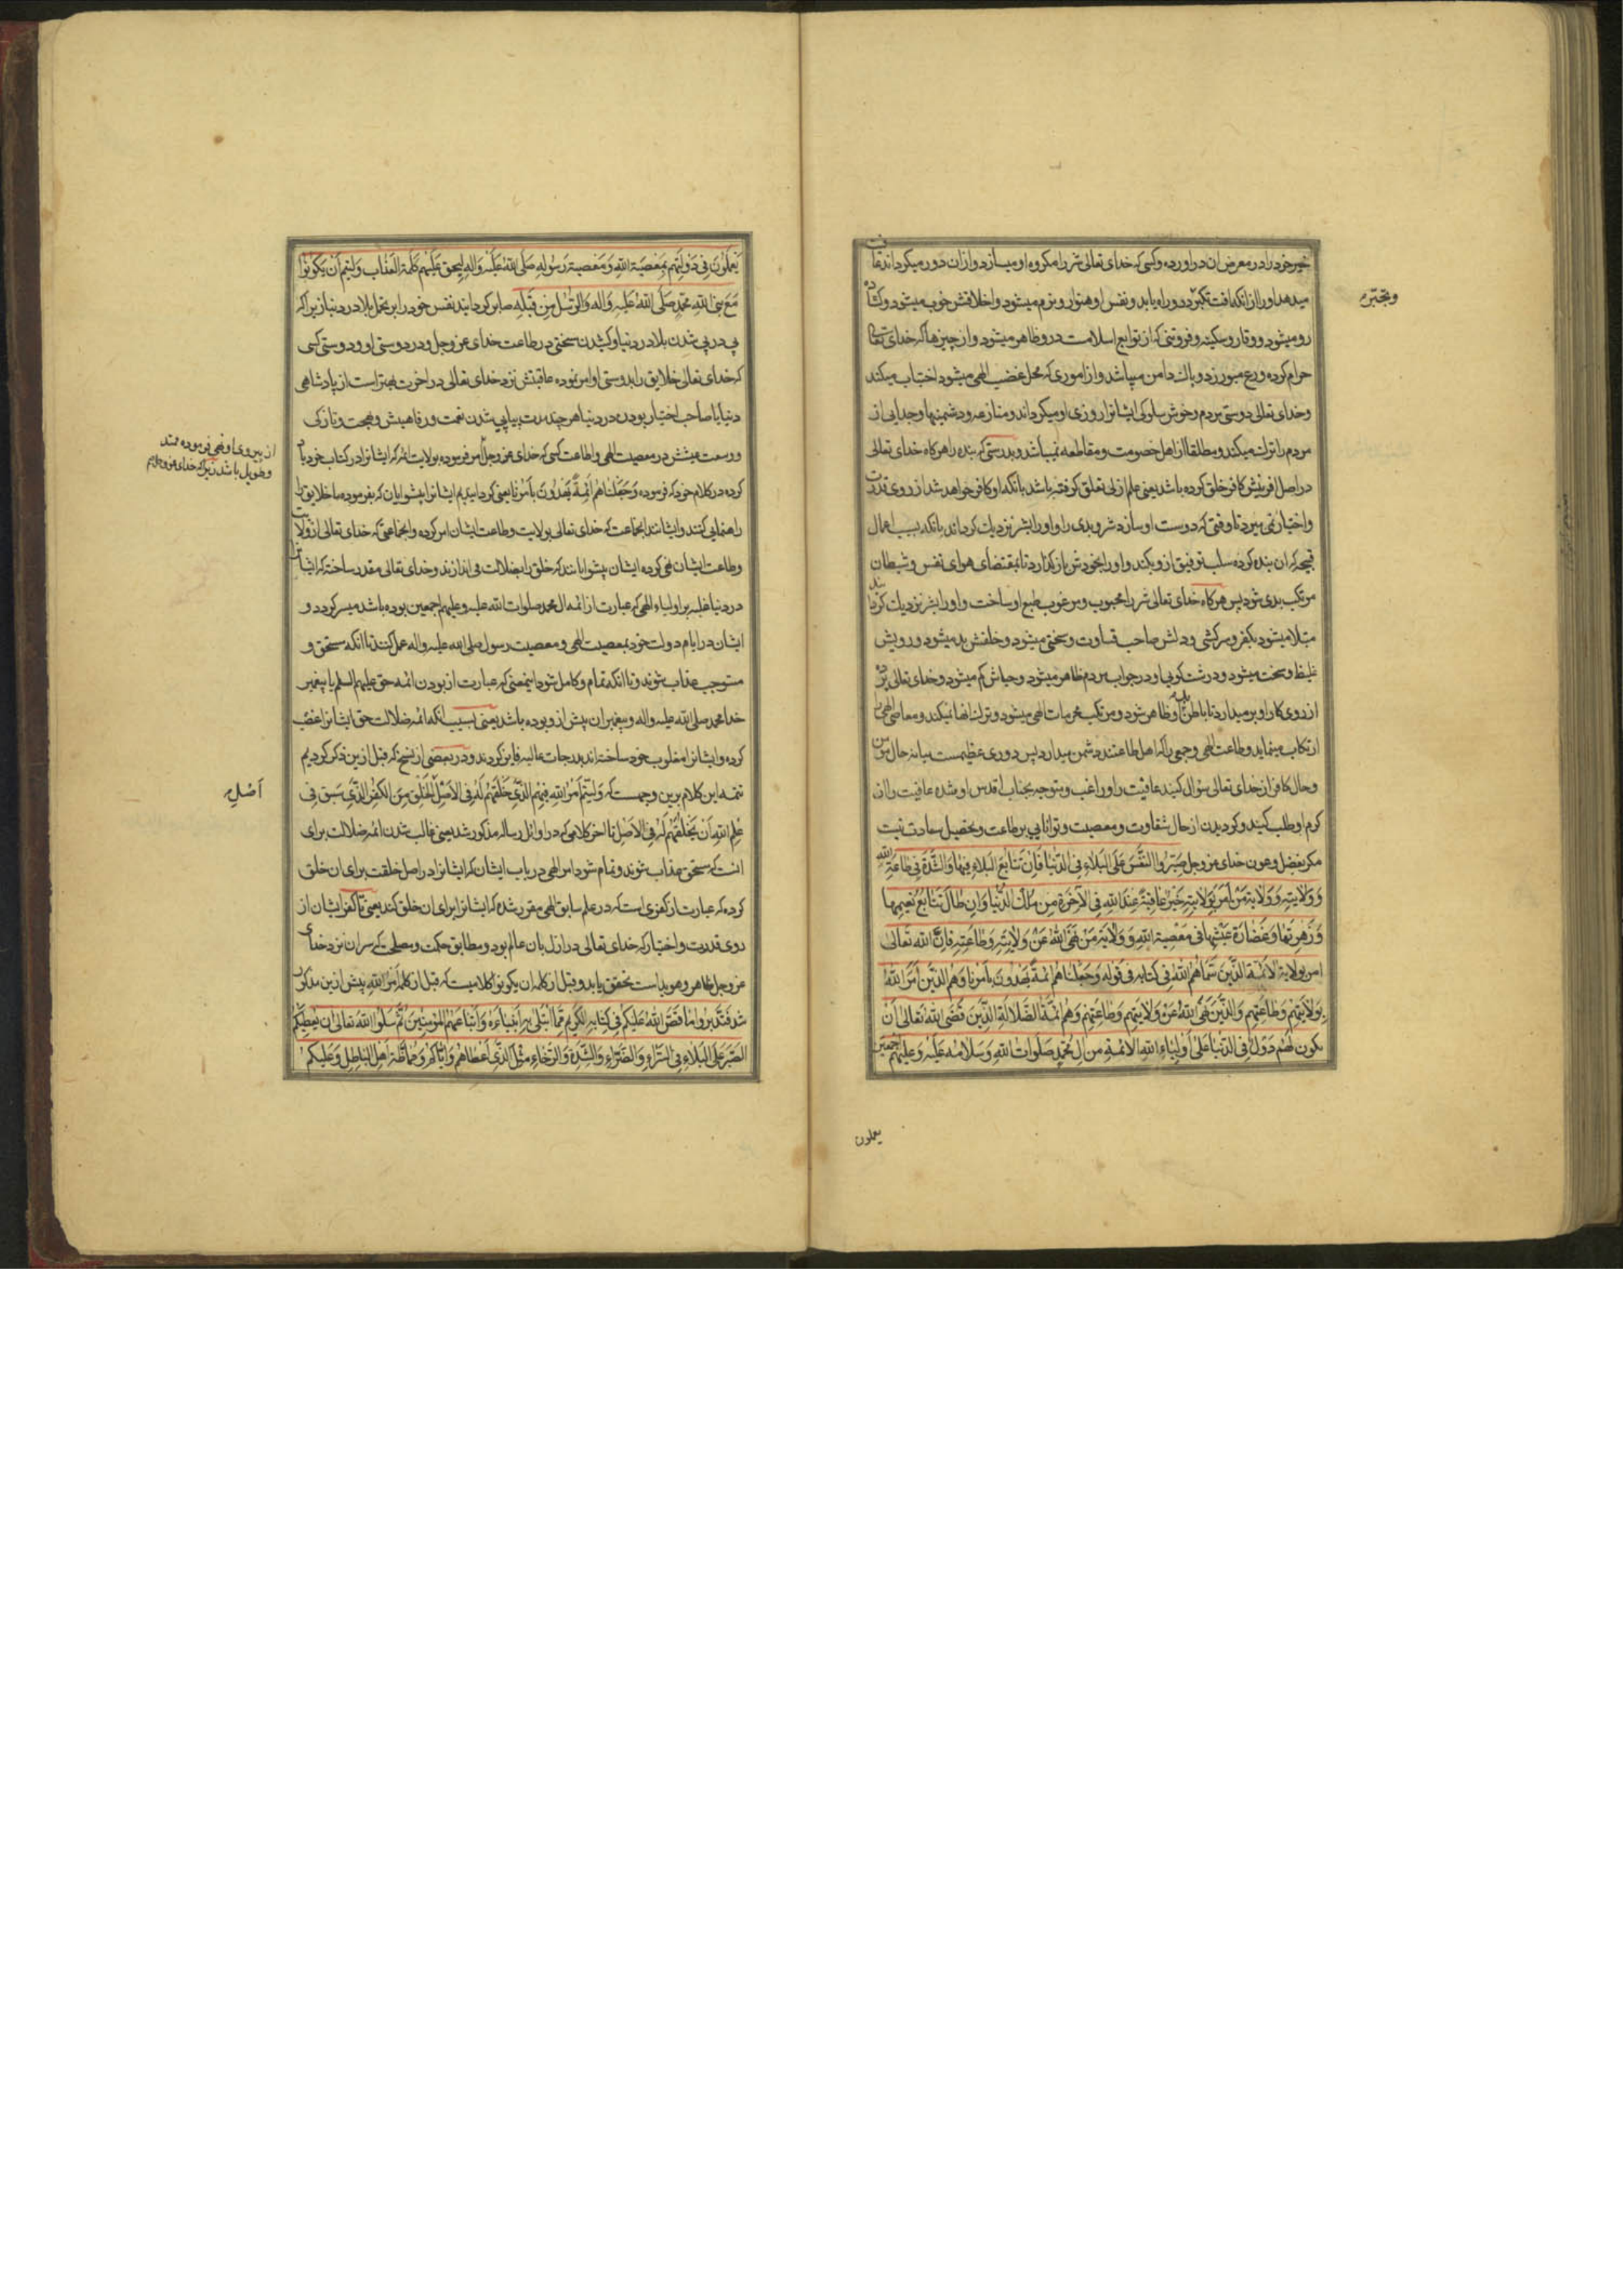 خیر خود را در معرض ان دراورده و کسی که خدای تعالی شر را مکروه او میسازد و از ان دور میکرداند عافیت
میدهد او را از انکه افت تکبر در و راه یابد و نفس او هموار و نرم میشود و اخلاقش خوب میشود و کشاده
رو میشود و وقار و سکینه و فروتنی که از توابع اسلامست درو ظاهر میشود و از چیزها که خدای تعالی
حرام کرده ورع میورزد و پاک دامن میباشد و از اموری که محل غضب الهی میشود اجتناب میکند
و خدای تعالی دوستی مردم و خوش سلوکی ایشانرا روزی او میکرداند و منازعه و دشمنیها و جدایی از
مردم را ترک میکند و مطلقا از اهل خصومت و مقاطعه نمیباشد و بدرستی که بنده را هرکاه خدای تعالی
در اصل افرینش کافر خلق کرده باشد یعنی علم ازلی تعلق کرفته باشد بانکه او کافر خواهد شد از روی قدرت
و اختیار نمی میرد تا وقتی که دوست او سازد شر و بدی را و او را بشر نزدیک کرداند بانکه بسبب اعمال
قبیحه که ان بنده کرده سلب توفیق ازو بکند و او را بخودش بازکذارد تا بمقتضای هوای نفس و شیطان
مرتکب بدی شود پس هرکاه خدای تعالی شر را محبوب و مرغوب طبع او ساخت و او را بشر نزدیک کردانید
مبتلا میشود بکفر و سرکشی و دلش صاحب قساوت و سختی میشود و خلقش بد میشود و رویش
غلیظ و سخت میشود و درشت کویی او در جواب مردم ظاهر میشود و حیاش کم میشود و خدای تعالی پرده
از روی کار او بر میدارد تا باطن او ظاهر شود و مرتکب محرمات الهی میشود و ترک انها نمیکند و معاصی الهی را
ارتکاب مینماید و طاعت الهی و جمعی را که اهل طاعتند دشمن میدارد پس دوری عظیمست میانه حال مؤمن
و حال کافر از خدای تعالی سؤال کنید عافیت را و راغب و متوجه بجناب اقدس او شده عافیت را از
کرم او طلب کنید و کردیدن از حال شقاوت و معصیت و توانایی بر طاعت و تحصیل سعادت نیست
مکر بفضل و عون خدای عز وجل صَبِّرُوا النَّفْسَ عَلَی البَلاءِ فِی الدُّنیا فَاِنَّ تَتابُعَ البَلاءِ فیها وَالشِّدَّةَ فی طاعَةِ اللهِ
وَوَلایَتِهِ وَوَلایَةِ مَنْ اَمَرَ بِوَلایَتِهِ خَیْرٌ عاقِبَةً عِنْدَ اللهِ فِی الآخِرَةِ مِنْ مُلْکِ الدُّنیا وَاِنْ طالَ تَتابُعُ نَعیمِها
وَزَهْرَتِها وَغَضارَةُ عَیْشِها فی مَعْصِیَةِ اللهِ وَوَلایَةِ مَنْ نَهَی اللهُ عَنْ وَلایَتِهِ وَطاعَتِهِ فَاِنَّ اللهَ تَعالی
اَمَرَ بِوِلایَةِ الاَئِمَّةِ الَّذینَ سَمّاهُمُ اللهُ فی کِتابِهِ فی قَوْلِهِ وَجَعَلْناهُمْ اَئِمَّةً یَهْدُونَ بِاَمْرِنا وَهُمُ الَّذینَ اَمَرَ اللهُ
بِوِلایَتِهِمْ وَطاعَتِهِمْ وَالَّذینَ نَهَی اللهُ عَنْ وَلایَتِهِمْ وَطاعَتِهِمْ وَهُمْ اَئِمَّةُ الضَّلالَةِ الَّذینَ قَضَی اللهُ تَعالی اَنْ
یَکُونَ لَهُمْ دُوَلٌ فِی الدُّنْیا عَلی اَوْلِیاءِ اللهِ الاَئِمَّةِ مِنْ الِ مُحَمَّدٍ صَلَواتُ اللهِ وَسَلامُهُ عَلَیْهِ وَعَلَیْهِمْ اَجْمَعینَ
یعملون
و تجبّر
یَعْمَلُونَ فی دَوْلَتِهِمْ بِمَعْصِیَةِ اللهِ وَمَعْصِیَةِ رَسُولِهِ صَلَّی اللهُ عَلَیْهِ وَالِهِ لِیَحِقَّ عَلَیْهِمْ کَلِمَةُ العَذابِ وَلِیَتِمَّ اَنْ یَکُونُوا
مَعَ نَبِیِّ اللهِ مُحَمَّدٍ صَلَّی اللهُ عَلَیْهِ وَالِه وَالرُّسُلِ مِنْ قَبْلِهِ صابر کردانید نفس خود را بر تحمل بلا در دنیا زیرا که
پی در پی شدن بلا در دنیا و کشیدن سختی در طاعت خدای عز وجل و در دوستی او و دوستی کسی
که خدای تعالی خلایق را بدوستی او امر نموده عاقبتش نزد خدای تعالی در اخرت بهتر است از پادشاهی
دنیا یا صاحب اختیار بودن در دنیا هر چند مدت پیاپی شدن نعمت و رفاهیتش و بهجت و تازکی
و وسعت عیشش در معصیت الهی و اطاعت کسی که خدای عز وجل امر فرموده بولایت ائمه که ایشانرا در کتاب خود یاد
کرده در کلام خود که فرموده وَجَعَلْناهُمْ اَئِمَّةً یَهْدُونَ بِاَمْرِنا یعنی کردانیدیم ایشانرا پیشوایان که بفرموده ما خلایق را
راهنمایی کنند و ایشانند انجماعت که خدای تعالی بولایت و طاعت ایشان امر کرده و انجماعتی که خدای تعالی از ولایت
و طاعت ایشان نهی کرده ایشان پیشوایانند که خلق را بضلالت می اندازند و خدای تعالی مقدر ساخته که ایشانرا
در دنیا غلبه بر اولیاء الهی که عبارت از ائمه ال محمد صلوات الله علیه و علیهم اجمعین بوده باشد میسر کردد و
ایشان در ایام دولت خود بمعصیت الهی و معصیت رسول صلی الله علیه واله عمل کنند تا انکه مستحق و
مستوجب عذاب شوند و تا انکه تمام و کامل شود اینمعنی که عبارت از بودن ائمه حق علیهم السلم با پیغمبر
خدا محمد صلی الله علیه واله و پیغمبران پیش ازو بوده باشد یعنی بسبب انکه ائمه ضلالت حق ایشانرا غصب
کرده و ایشانرا مغلوب خود ساخته اند بدرجات عالیه فایز کردند و در بعضی از نسخ که قبل ازین ذکر کردیم
تتمه این کلام برین وجهست که وَلِیَتِمَّ اَمْرُ اللهِ فیهِمُ الَّذی خَلَقَهُمْ لَهُ فِی الاَصْلِ الخَلْقِ مِنَ الکُفْرِ الَّذی سَبَقَ فی
عِلْمِ اللهِ اَنْ یَخْلُقَهُمْ لَهُ فِی الاَصْلِ تا اخر کلامی که در اوائل رساله مذکور شد یعنی غالب شدن ائمه ضلالت برای
انست که مستحق عذاب شوند و تمام شود امر الهی در باب ایشان که ایشانرا در اصل خلقت برای ان خلق
کرده که عبارت از کفری است که در علم سابق الهی مقرر شده که ایشانرا برای ان خلق کند یعنی تا کفر ایشان از
روی قدرت و اختیار که خدای تعالی در ازل بان عالم بود و مطابق حکمت و مصلحتی که سر ان نزد خدای
عز وجل ظاهر و هویداست تحقق یابد و قبل از کلمه ان یکونوا کلامیست که قبل از کلمه اَمْرُ اللهِ پیش ازین مذکور
شد فَتَدَبَّرُوا ما قَصَّ اللهُ عَلَیْکُمْ فی کِتابِهِ الکَریمِ مِمّا ابْتَلی بِهِ اَنْبِیاءَهُ وَاَتْباعَهُمُ المُؤْمِنینَ ثُمَّ سَلُوا اللهَ تَعالی اَنْ یُعْطِیَکُمُ
الصَّبْرَ عَلَی البَلاءِ فِی السَّرّاءِ وَالضَّرّاءِ وَالشِّدَّةِ وَالرَّخاءِ مِثْلَ الَّذی اَعْطاهُمْ وَاِیّاکُمْ وَمُماظَّةَ اَهْلِ الباطِلِ وَعَلَیْکُمْ
از پیروی او نهی فرموده ممتد
و طویل باشد زیرا که خدای عز وجل
اَصْلِ